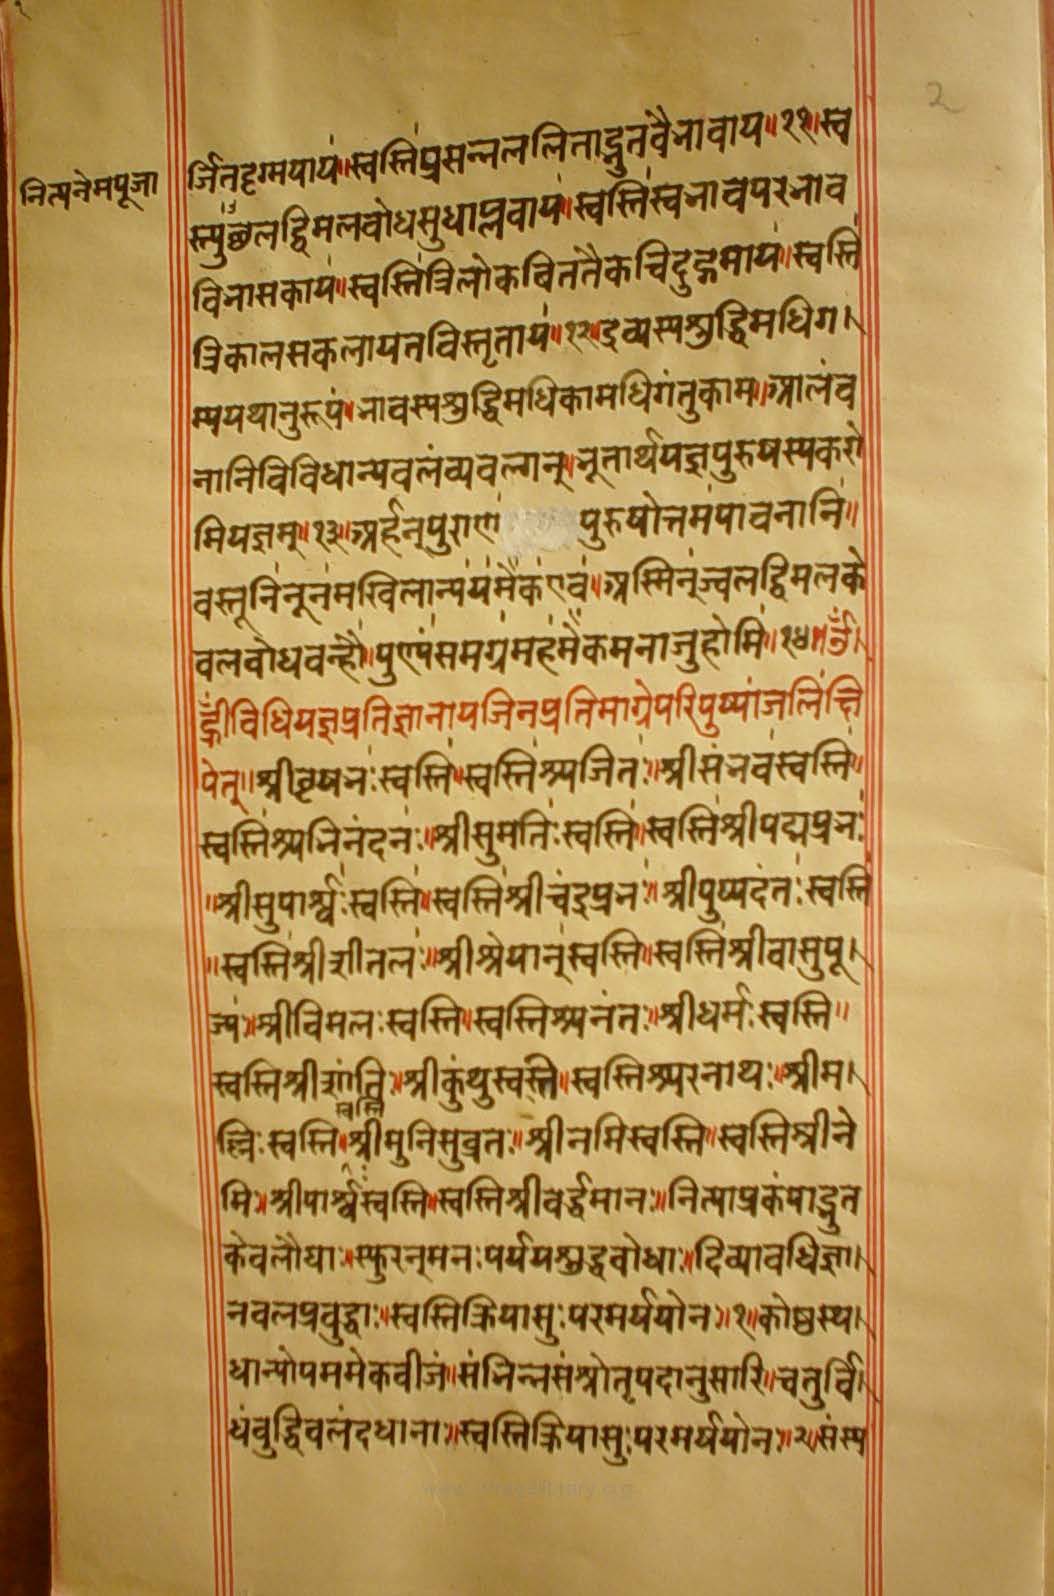 2
नित्यनेमपूजा
र्जितदृग्मयाय॥स्वस्तिप्रसन्नललिताद्भुतवैभवाय॥११॥स्व
स्त्युछलद्विमलबोधसुधाप्लवाय॥स्वस्तिस्वभावपरभाव
विभासकाय॥स्वस्तित्रिलोकविततैकचिदुद्गमाय॥स्वस्ति
त्रिकालसकलायतविस्तृताय॥१२॥द्रव्यस्यशुद्धिमधिग।
म्ययथानुरूपं॥भावस्यशुद्धिमधिकामधिगंतुकाम॥आलंब
नानिविविधान्यवलंव्यवल्गन्॥भूतार्थयज्ञपुरुषस्यकरो
मियज्ञम्॥१३॥अर्हन्पुराण पुरुषोत्तमपावनानि॥
वस्तूनिनूनमखिलान्ययमेकएव॥अस्मिन्ज्वलद्विमलके
वलबोधवन्हौ॥पुण्यंसमग्रमहमेकमनाजुहोमि॥१४॥ॐ।
ह्रींविधियज्ञप्रतिज्ञानायजिनप्रतिमाग्रेपरिपुष्पांजलिंक्षि
पेत्॥श्रीवृषभःस्वस्ति॥स्वस्तिश्र्यजितः॥श्रीसंभवस्वस्ति॥
स्वस्तिश्र्यभिनंदनः॥श्रीसुमतिःस्वस्ति॥स्वस्तिश्रीपद्मप्रभः
॥श्रीसुपार्श्वःस्वस्ति॥स्वस्तिश्रीचंद्रप्रभः॥श्रीपुष्पदंतःस्वस्ति
॥स्वस्तिश्रीशीतलः॥श्रीश्रेयान्स्वस्ति॥स्वस्तिश्रीवासुपू।
ज्यः॥श्रीविमलःस्वस्ति॥स्वस्तिश्र्यनंतः॥श्रीधर्मःस्वस्ति॥
स्वस्तिश्रीशांतिः॥श्रीकुंथुस्वस्ति॥स्वस्तिश्र्यरनाथः॥श्रीम।
स्वस्ति
ल्लिःस्वस्ति॥श्रीमुनिसुव्रतः॥श्रीनमिस्वस्ति॥स्वस्तिश्रीने
मिः॥श्रीपार्श्वःस्वस्ति॥स्वस्तिश्रीवर्द्धमानः॥नित्याप्रकंपाद्भुत
केवलौघाः॥स्फुरन्मनःपर्ययशुद्धबोधाः॥दिव्यावधिज्ञा।
नबलप्रबुद्धाः॥स्वस्तिक्रियासुःपरमर्षयोनः॥१॥कोष्ठस्थ।
धान्योपममेकबीजं॥संभिन्नसंश्रोतृपदानुसारि॥चतुर्वि।
धंबुद्धिबलंदधानाः॥स्वस्तिक्रियासुःपरमर्षयोनः॥२॥संस्प